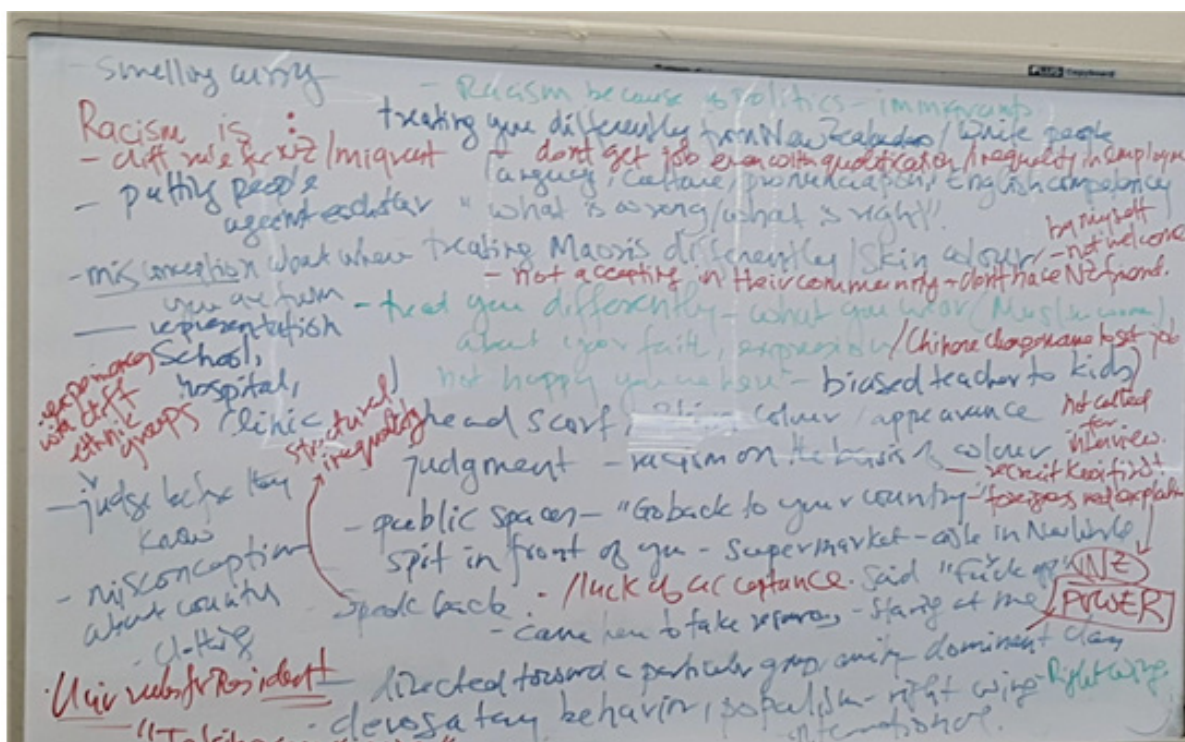 - smelling curry
PLUS Copyboard
- Racism because of Politics - immigrants
Racism is :
treating you differently from New Zealanders / white people
- diff rule for NZ / migrant
- dont get job even with qualification / inequality in employm
language, culture, pronunciation, English competency
- putting people
"what is wrong / what is right".
by myself
- not welcome
- misconception about where
you are from
treating Maoris differently / skin colour
- not accepting in their community - dont have NZ friend.
- treat you differently - what you wear (Muslim women),
- representation
about your faith, expression
/ Chinese change name to get job
experiences
with diff
ethnic
groups
School,
hospital,
Clinic
not happy you are here - biased teacher to kids
structural
inequality
head scarf, colour / appearance
not called
for
interview.
judgment - racism on the basis of colour
- recruit Kiwi first
- judge before they
know
- public spaces - "Go back to your country"
spit in front of you - supermarket - in
- misconception
about country
- clothing
- speak back
: / luck of acceptance. said "fuck off"
NZ
POWER
- came here to take resources - staring at me
rules for Resident
- directed toward a particular group dominent class
- derogatory behavior, populism - right wing - Right wing
international.